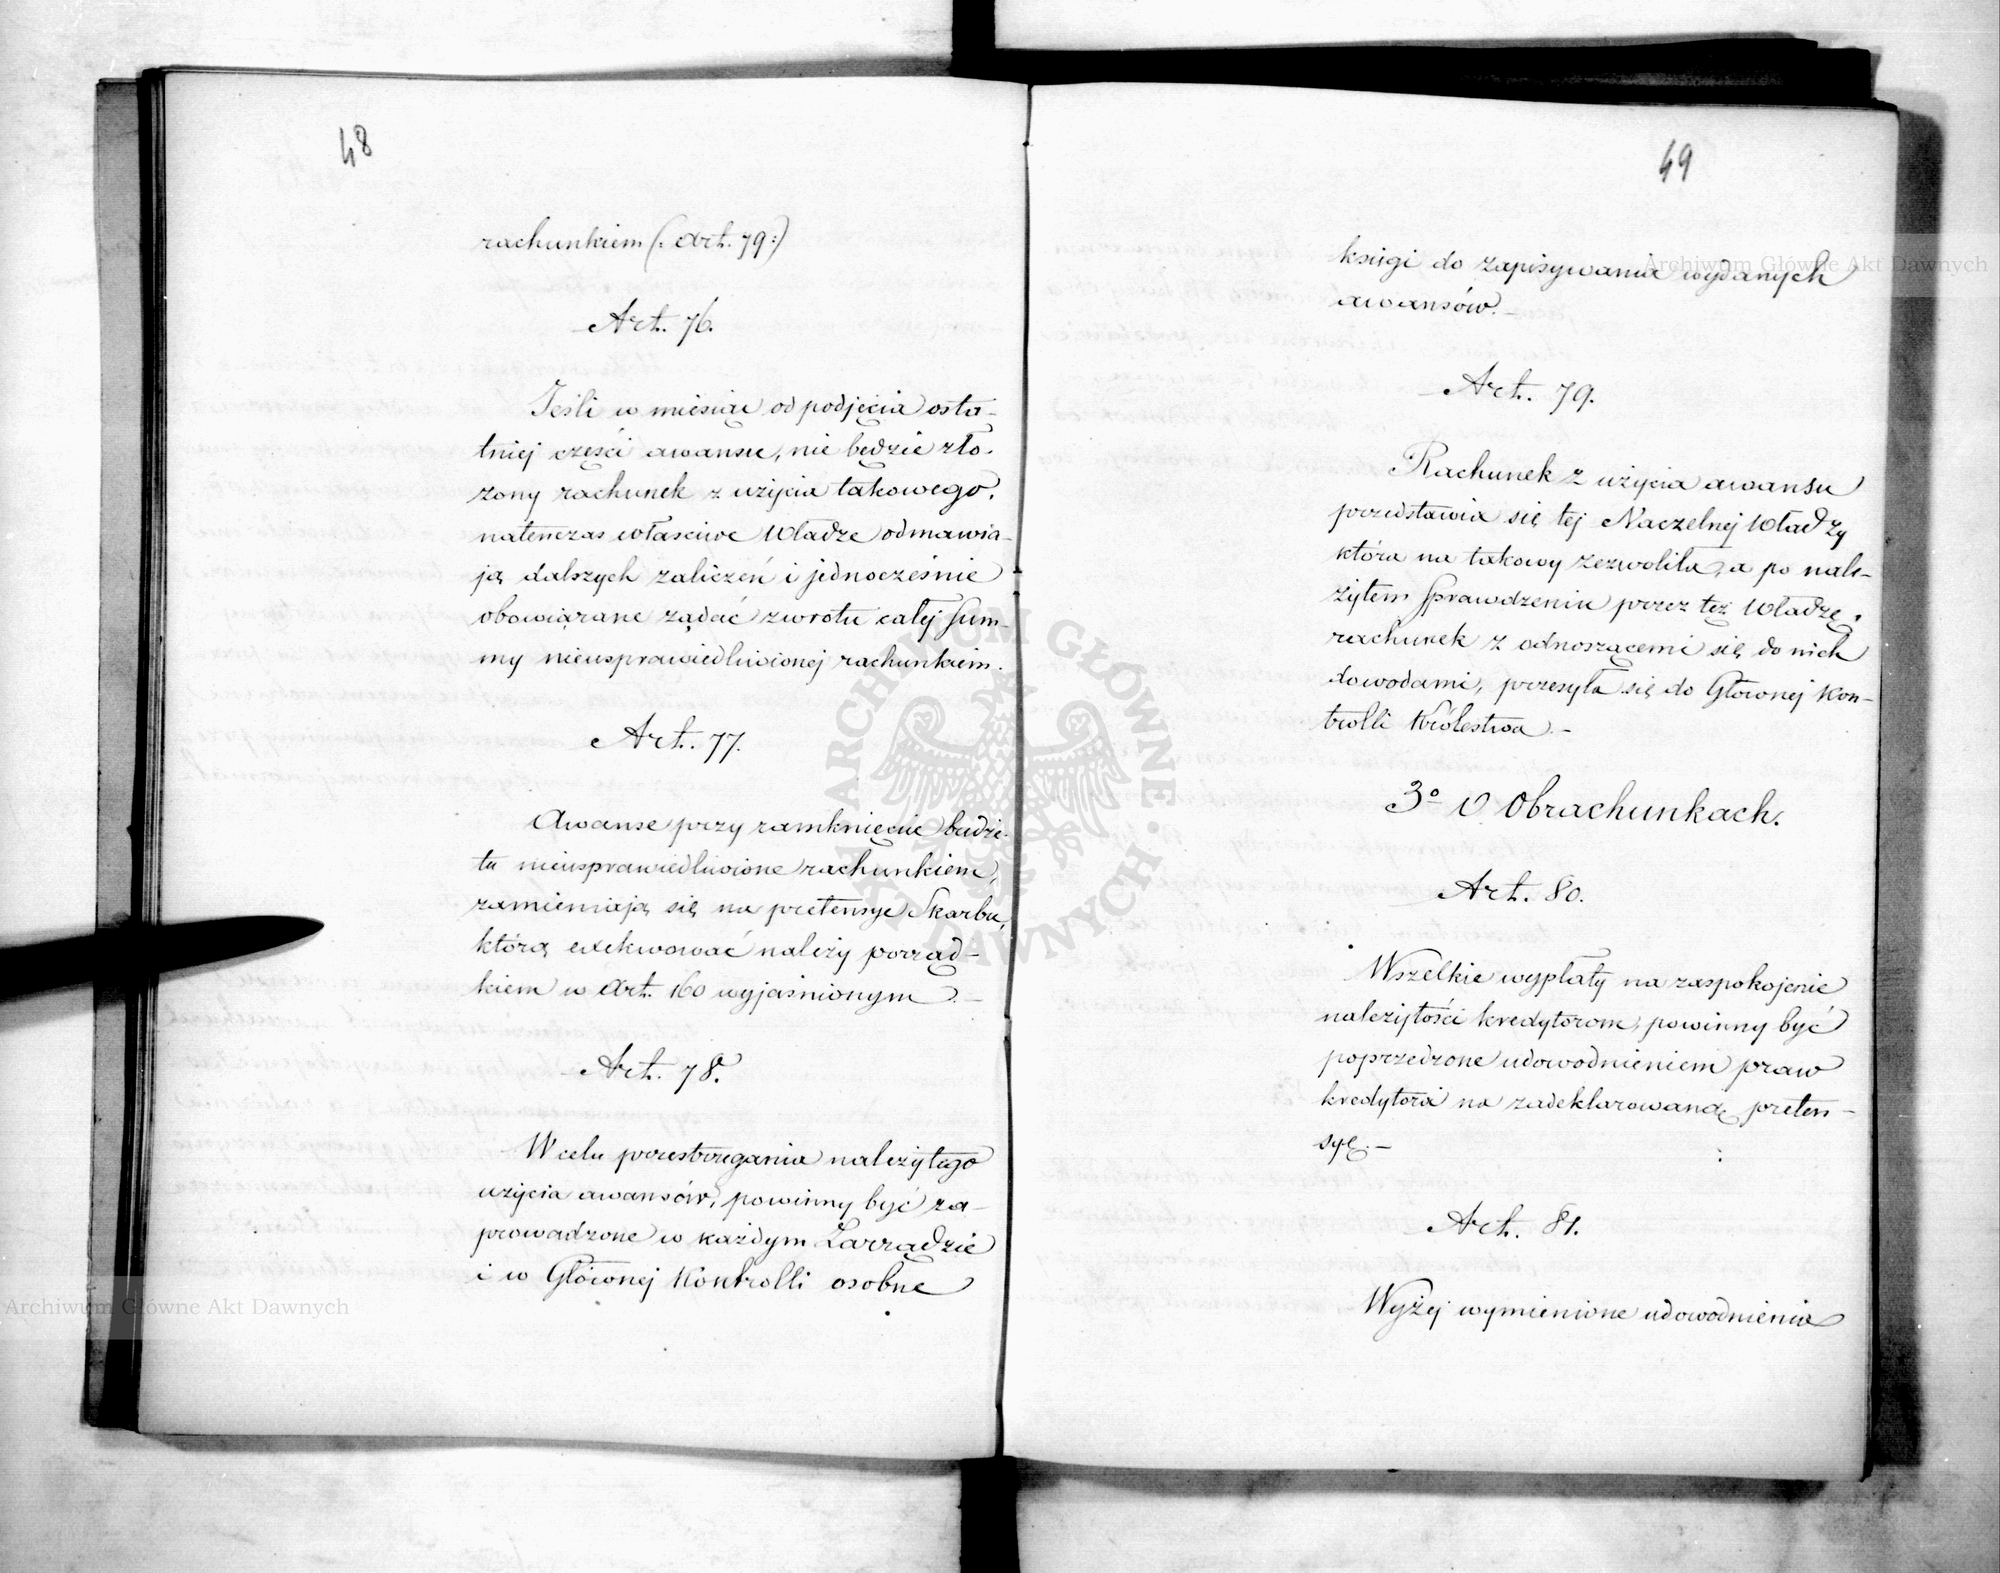 48
rachunkiem (: Art. 79:)
Art. 76.
Jeśli w miesiąc od podjęcia osta-
tniej części awansu, nie będzie zło-
żony rachunek z użycia takowego,
natenczas właściwe Władze odmawia-
ją dalszych zaliczeń i jednocześnie
obowiązane żądać zwrotu całej Sum-
my nieusprawiedliwionej rachunkiem.
Art. 77.
Awanse przy zamknięcie budże-
tu nieusprawiedliwione rachunkiem,
zamieniają się na pretensye Skarbu,
którą exekwować należy porząd-
kiem w Art. 160 wyjaśnionym. –
Art. 78.
W celu przestrzegania należytego
użycia awansów, powinny być za-
prowadzone w każdym Zarządzie
i w Głównej Kontrolli osobne
49
księgi do zapisywania wydanych
awansów. –
Art. 79.
Rachunek z użycia awansu
przedstawia się tej Naczelnej Władzy
która na takowy zezwoliła, a po nale-
żytem Sprawdzeniu przez też Władzę,
rachunek z odnoszącemi się do nich
dowodami, przesyła się do Głównej Kon-
trolli Królestwa. –
3º O Obrachunkach.
Art. 80.
Wszelkie wypłaty na zaspokojenie
należytości kredytorom, powinny być
poprzedzone udowodnieniem praw
kredytora na zadeklarowaną preten-
syę. –
Art. 81.
Wyżej wymienione udowodnienia
ARCHIWUM GŁÓWNE AKT DAWNYCH
Archiwum Główne Akt Dawnych
Archiwum Główne Akt Dawnych